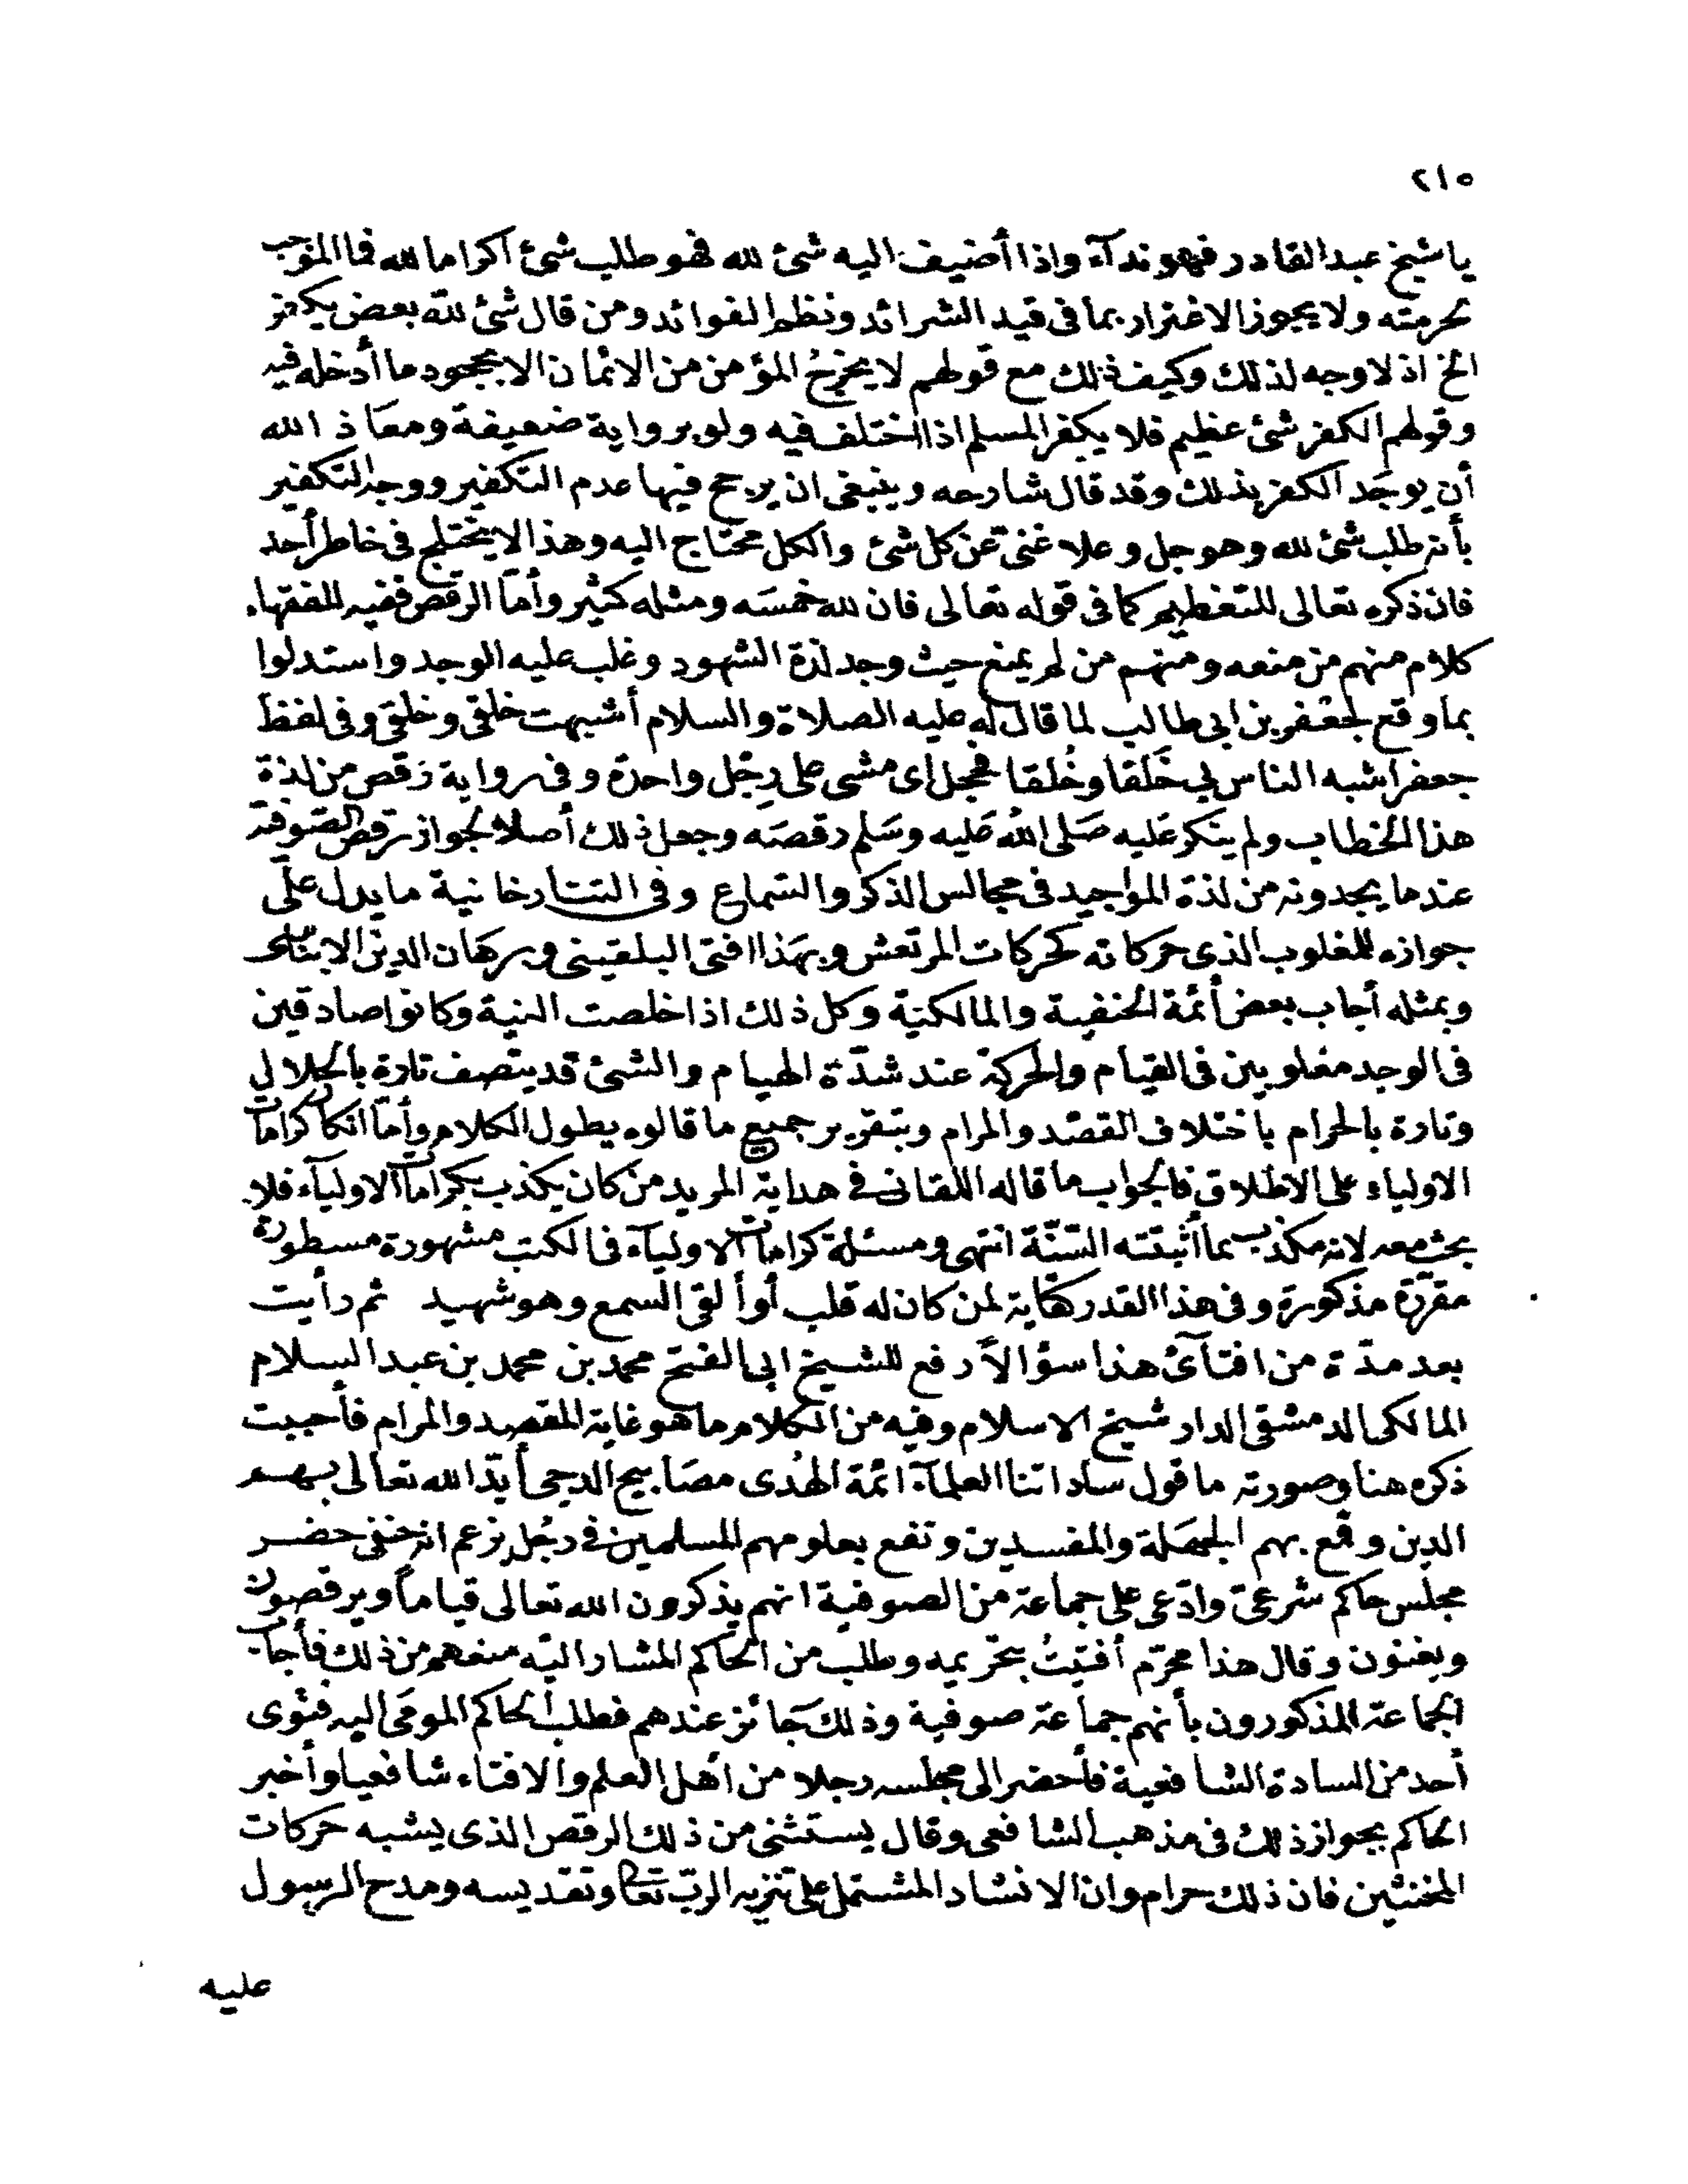 ٢١٥
ياشيخ عبدالقادر فهوندآء واذا أضيف اليه شئ لله فهو طلب شئ اكراما لله فما الموجب
لحرمته ولايجوز الاغترار بما فى قيد الشرائد ونظم الفوائد ومن قال شئ لله بعض يكفر
الخ اذ لاوجه لذلك وكيف ذلك مع قولهم لا يخرجُ المؤمن من الائمان الا بجحود ما أدخله فيه
وقولهم الكفر شئ عظيم فلا يكفر المسلم اذا اختلف فيه ولو برواية ضعيفة ومعاذ الله
أن يوجد الكفر بذلك وقد قال شارحه وينبغى ان يرجح فيها عدم التكفير ووجه التكفير
بأنه طلب شئ لله وهو جل وعلا غنىّ عن كل شئ والكل محتاج اليه وهذا لا يختلج فى خاطر أحد
فان ذكره تعالى للتعظيم كما فى قوله تعالى فان لله خمسه ومثله كثير وأما الرقص ففيه للفقهاء
كلام منهم من منعه ومنهم من لم يمنع حيث وجد لذة الشهود وغلب عليه الوجد واستدلوا
بما وقع لجعفر بن ابى طالب لما قال له عليه الصلاة والسلام أشبهت خلقى وخلقى وفى لفظ
جعفر اشبه الناس بي خَلقا وخُلقا فحجل اى مشى على رِجْل واحدة وفى رواية رَقص من لذة
هذا الخطاب ولم ينكر عَليه صَلى اللهُ عَليه وسَلم رقصَه وجعل ذلك أصلا لجواز رقص الصّوفة
عند ما يجدونه من لذة المواجيد فى مجالس الذكر والسّماع وفى التتارخانية ما يدل على
جوازه للمغلوب الذى حركاته كحركات المرتعش وبهَذا افتى البلقينى وبرهَان الدين الابناسى
وبمثله أجاب بعض أئمة الحنفية والمالكيّة وكل ذلك اذا خلصت النية وكانوا صادقين
فى الوجد مغلوبين فى القيام والحركة عند شدّة الهيام والشئ قد يتصف تارة بالحلال
وتارة بالحرام باختلاف القصْد والمرام وبتقرير جميع ما قالوه يطول الكلام وأما انكار كرامات
الاولياء على الاطلاق فالجواب ما قاله اللقانى فى هداية المريد من كان يكذب بكرامات الاوليآء فلا
بحث معه لانه مكذب بما أثبتته السّنّة انتهى ومسئلة كرامات الاوليآء فى الكتب مشهورة مسطورة
مقررة مذكورة وفى هذا القدر كفاية لمن كان له قلب أو ألقى السمع وهو شهيد ثم رأيت
بعد مدّة من افتآئ هذا سؤالاً رفع للشيخ ابى الفتح محمد بن محمد بن عبد السلام
المالكى الدمشقى الدار شيخ الاسلام وفيه من الكلام ما هو غاية المقصد والمرام فأحببت
ذكره هنا وصورته ما قول ساداتنا العلمآء ائمة الهُدى مصَابيح الدجى أيّد الله تعالى بهم
الدين وقمع بهم الجهَلة والمفسدين ونفع بعلومهم المسلمين فى رجُل زعم انه حنفى حضر
مجلس حاكم شرعىّ وادّعى على جماعة من الصوفية انهم يذكرون الله تعالى قياماً ويرقصون
ويغنون وقال هذا محرّم أفتيتُ بتحريمه وطلب من الحاكم المشار اليه منعهم من ذلك فأجاب
الجماعة المذكورون بأنهم جماعة صوفية وذلك جائز عندهم فطلب الحاكم المومَى اليه فتوى
أحد من السادة الشافعية فأحضر الى مجلسه رجلا من اهل العلم والافتاء شافعيا وأخبر
الحاكم بجواز ذلك فى مذهب الشافعى وقال يستثنى من ذلك الرقص الذى يشبه حركات
المخنثين فان ذلك حرام وان الانشاد المشتمل على تنزيه الربّ تعالى وتقديسه ومدح الرسول
عليه